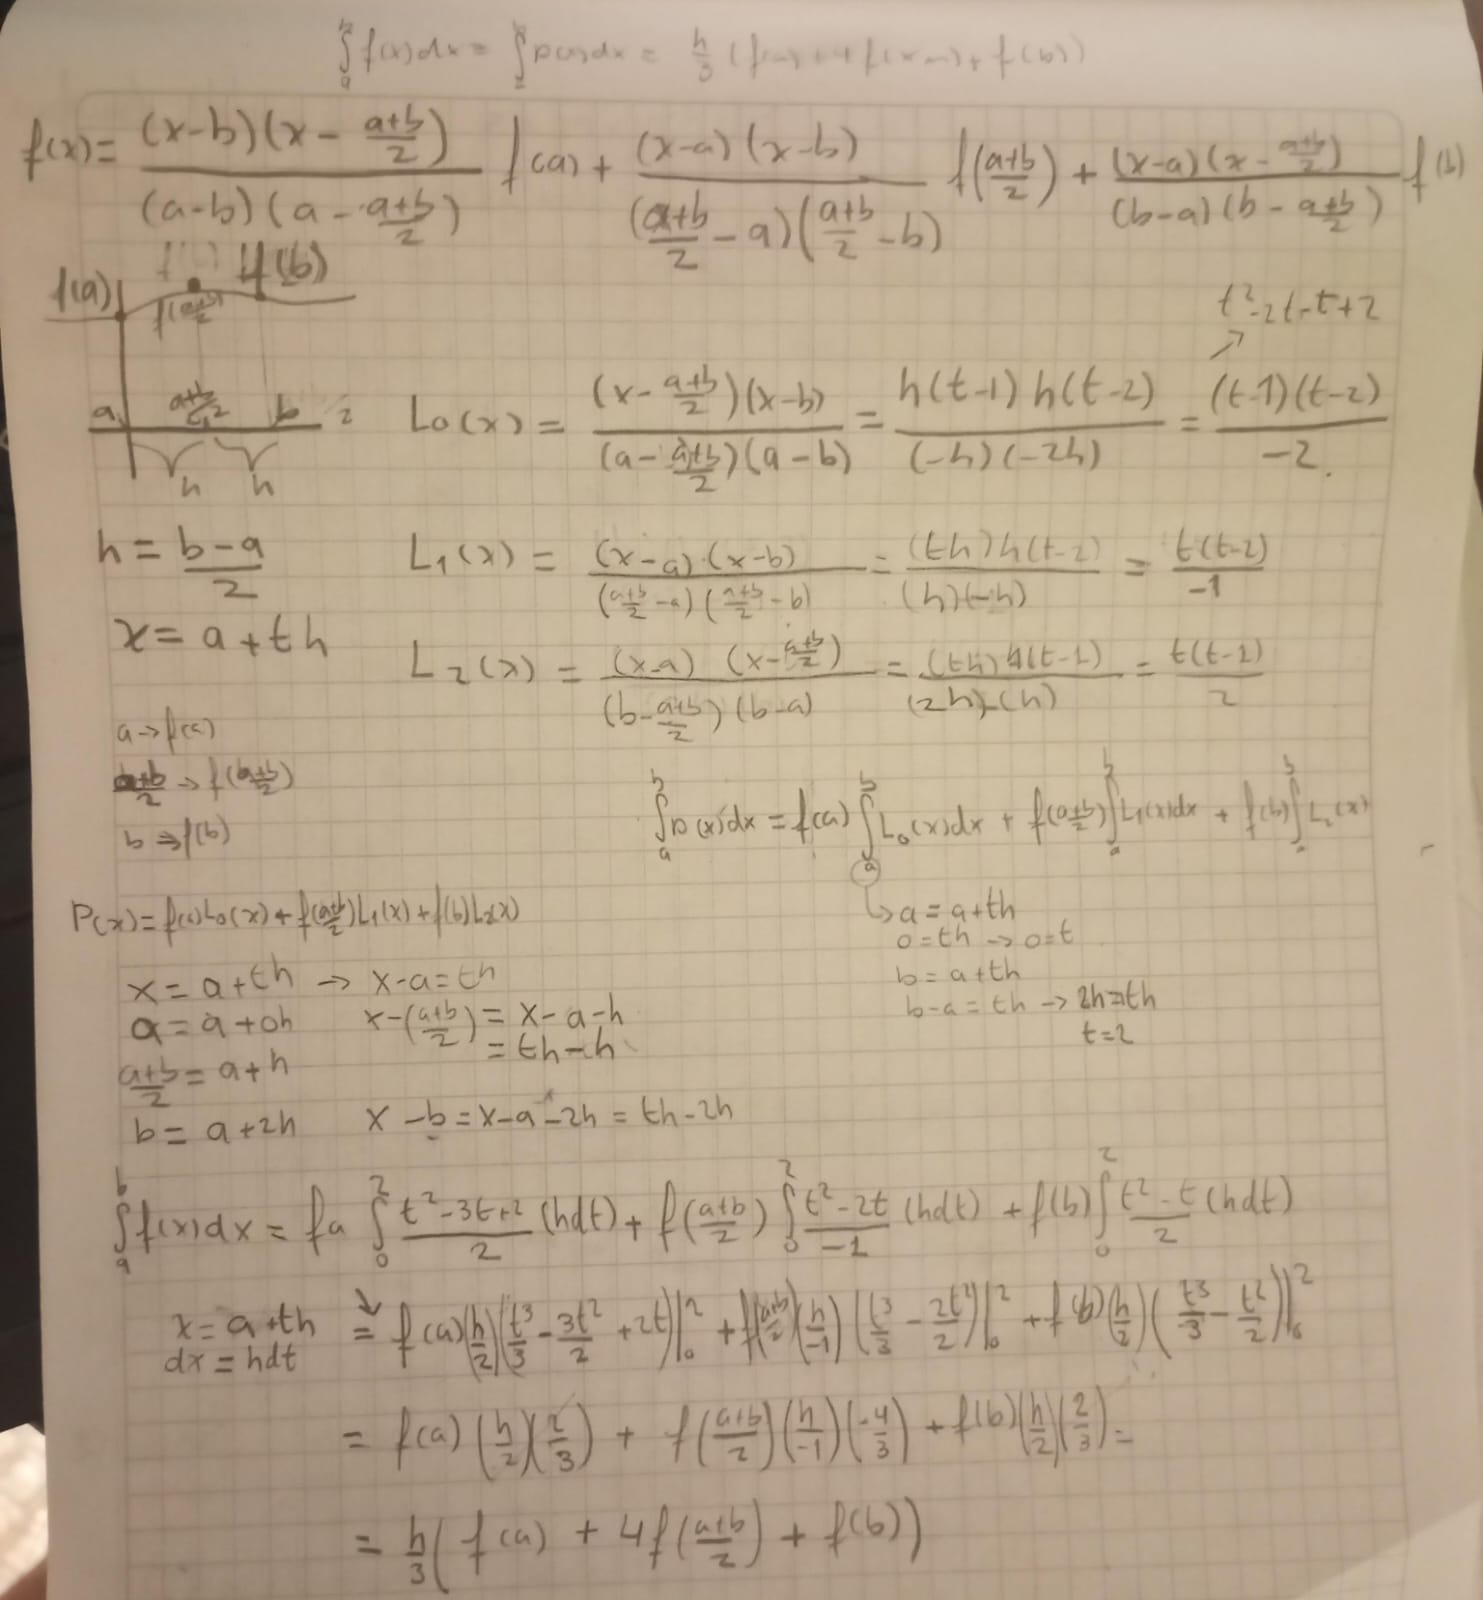 ∫_a^b f(x)dx = ∫_a^b P(x)dx = h/3 (f(a)+4f(xm)+f(b))
f(x)= (x-b)(x - (a+b)/2) / (a-b)(a - (a+b)/2) f(a) + (x-a)(x-b) / ((a+b)/2 - a)((a+b)/2 - b) f((a+b)/2) + (x-a)(x - (a+b)/2) / (b-a)(b - (a+b)/2) f(b)
f(a) f((a+b)/2) f(b)
t²-2t-t+2
a (a+b)/2 b
h h
L₀(x) = (x - (a+b)/2)(x-b) / (a - (a+b)/2)(a-b) = h(t-1) h(t-2) / (-h)(-2h) = (t-1)(t-2) / -2
h = (b-a)/2
L₁(x) = (x-a)·(x-b) / ((a+b)/2 - a)((a+b)/2 - b) = (th)h(t-2) / (h)(-h) = t(t-2) / -1
x = a + th
L₂(x) = (x-a) (x - (a+b)/2) / (b - (a+b)/2)(b-a) = (th)h(t-1) / (2h)(h) = t(t-1) / 2
a → f(a)
(a+b)/2 → f((a+b)/2)
b → f(b)
∫_a^b P(x)dx = f(a) ∫_a^b L₀(x)dx + f((a+b)/2) ∫_a^b L₁(x)dx + f(b) ∫_a^b L₂(x)
P(x) = f(a)L₀(x) + f((a+b)/2)L₁(x) + f(b)L₂(x)
↳ a = a+th
0 = th → 0 = t
b = a + th
b-a = th → 2h = th
t = 2
x = a + th → x-a = th
a = a + 0h
x - ((a+b)/2) = x - a - h
= th - h
(a+b)/2 = a + h
b = a + 2h
x - b = x - a - 2h = th - 2h
∫_a^b f(x)dx = fa ∫_0^2 (t²-3t+2)/2 (hdt) + f((a+b)/2) ∫_0^2 (t²-2t)/-1 (hdt) + f(b) ∫_0^2 (t²-t)/2 (hdt)
x = a + th
dx = hdt
= f(a)(h/2)(t³/3 - 3t²/2 + 2t)|_0^2 + f((a+b)/2)(h/-1)(t³/3 - 2t²/2)|_0^2 + f(b)(h/2)(t³/3 - t²/2)|_0^2
= f(a)(h/2)(2/3) + f((a+b)/2)(h/-1)(-4/3) + f(b)(h/2)(2/3) =
= h/3 (f(a) + 4f((a+b)/2) + f(b))